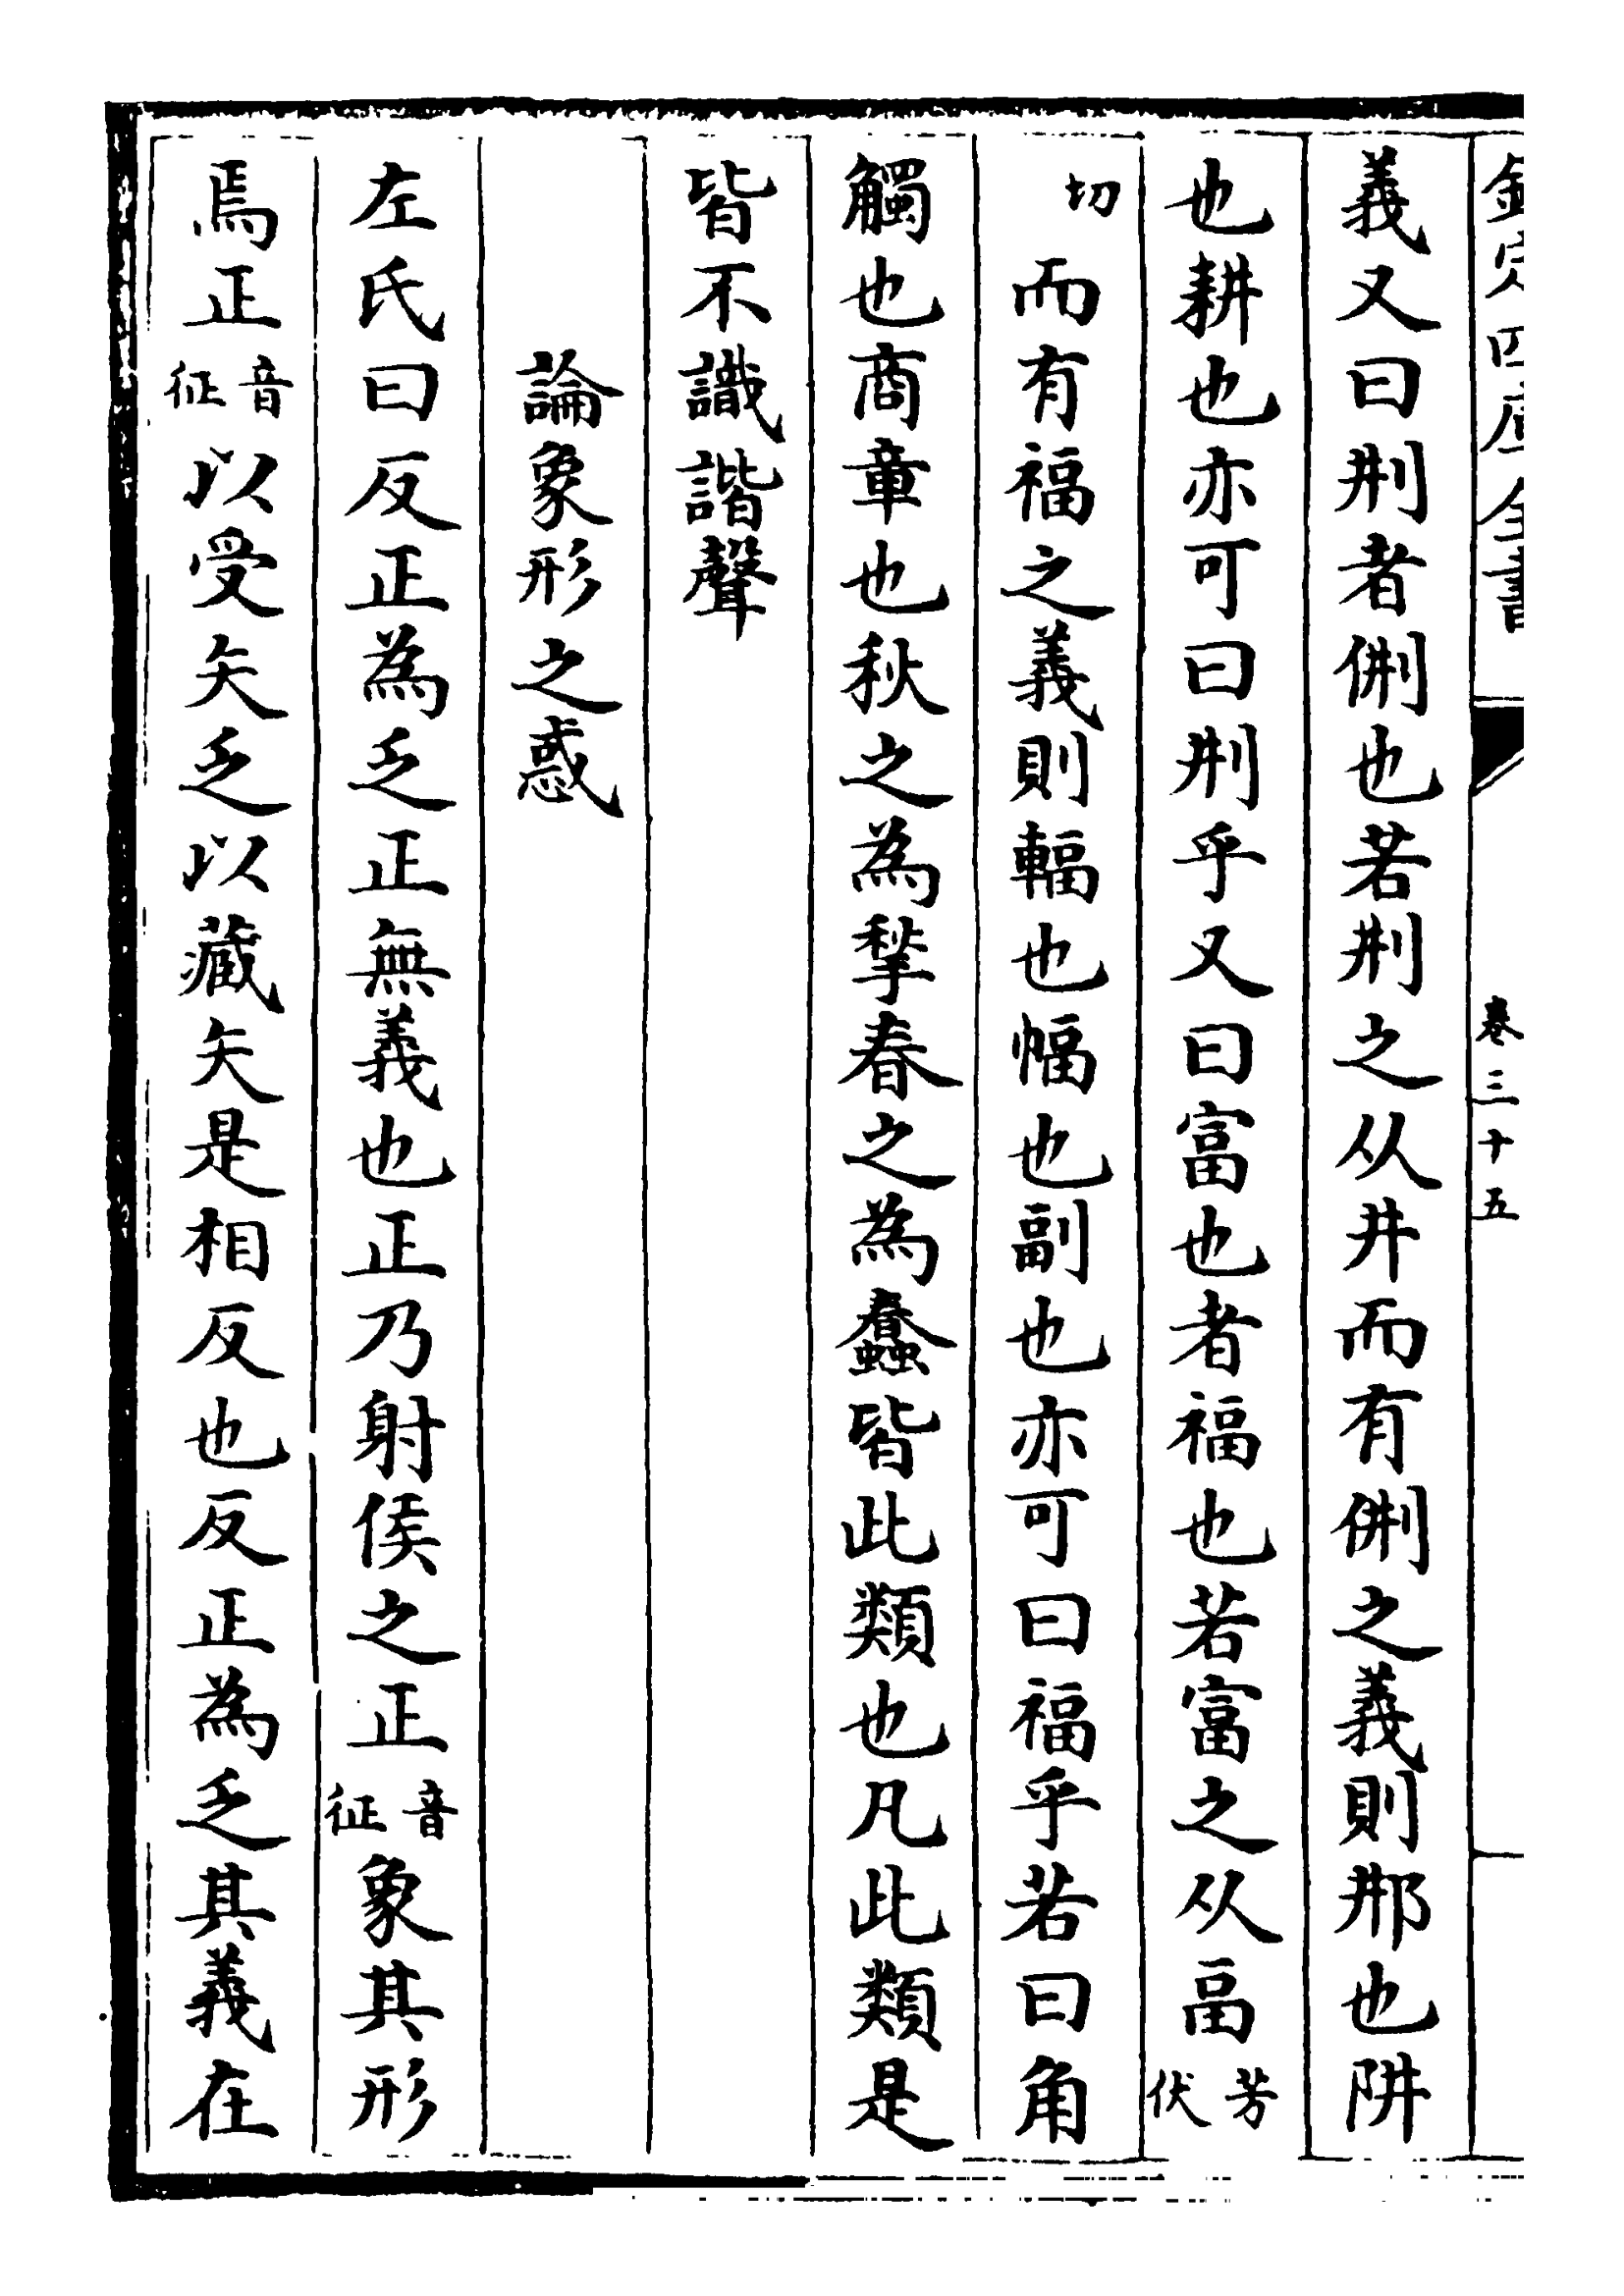 欽定四庫全書 卷三十五
義又曰㓝者侀也若㓝之从井而有侀之義則邢也阱
也耕也亦可曰㓝乎又曰富也者福也若富之从畐芳伏
切而有福之義則輻也幅也副也亦可曰福乎若曰角
觸也商章也秋之為揫春之為蠢皆此類也凡此類是
皆不識諧聲
論象形之惑
左氏曰反正為乏正無義也正乃射侯之正音征象其形
焉正音征以受矢乏以藏矢是相反也反正為乏其義在